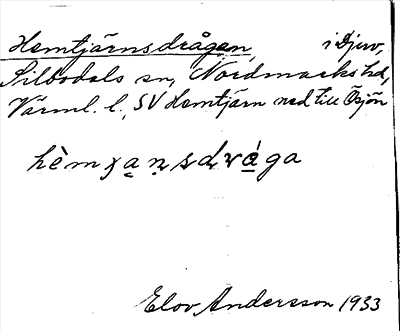 Hemtjärnsdrågen, i Djuv,
Silbodals sn, Nordmarks hd,
Värml. l., SV Hemtjärn ned till Ösjön
Elov Andersson 1933